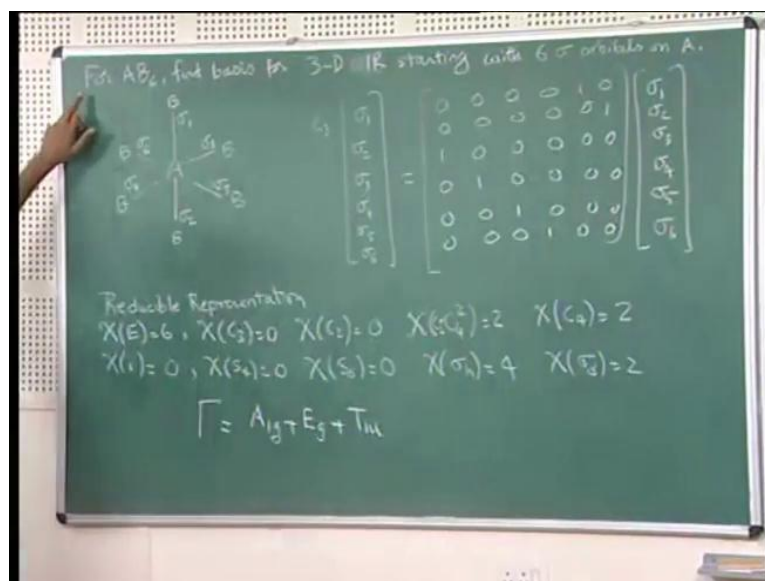 For AB₆, find basis for 3-D IR starting with 6 σ orbitals on A.
B
σ₁
B σ₆ σ₃ B
A
B σ₄ σ₅ B
σ₂
B
C₃ [σ₁ σ₂ σ₃ σ₄ σ₅ σ₆] = [0 0 0 0 1 0
0 0 0 0 0 1
1 0 0 0 0 0
0 1 0 0 0 0
0 0 1 0 0 0
0 0 0 1 0 0] [σ₁ σ₂ σ₃ σ₄ σ₅ σ₆]
Reducible Representation
χ(E)=6, χ(C₃)=0 χ(C₂)=0 χ(C₄²)=2 χ(C₄)=2
χ(i)=0, χ(S₄)=0 χ(S₆)=0 χ(σₕ)=4 χ(σd)=2
Γ = A₁g + Eg + T₁u